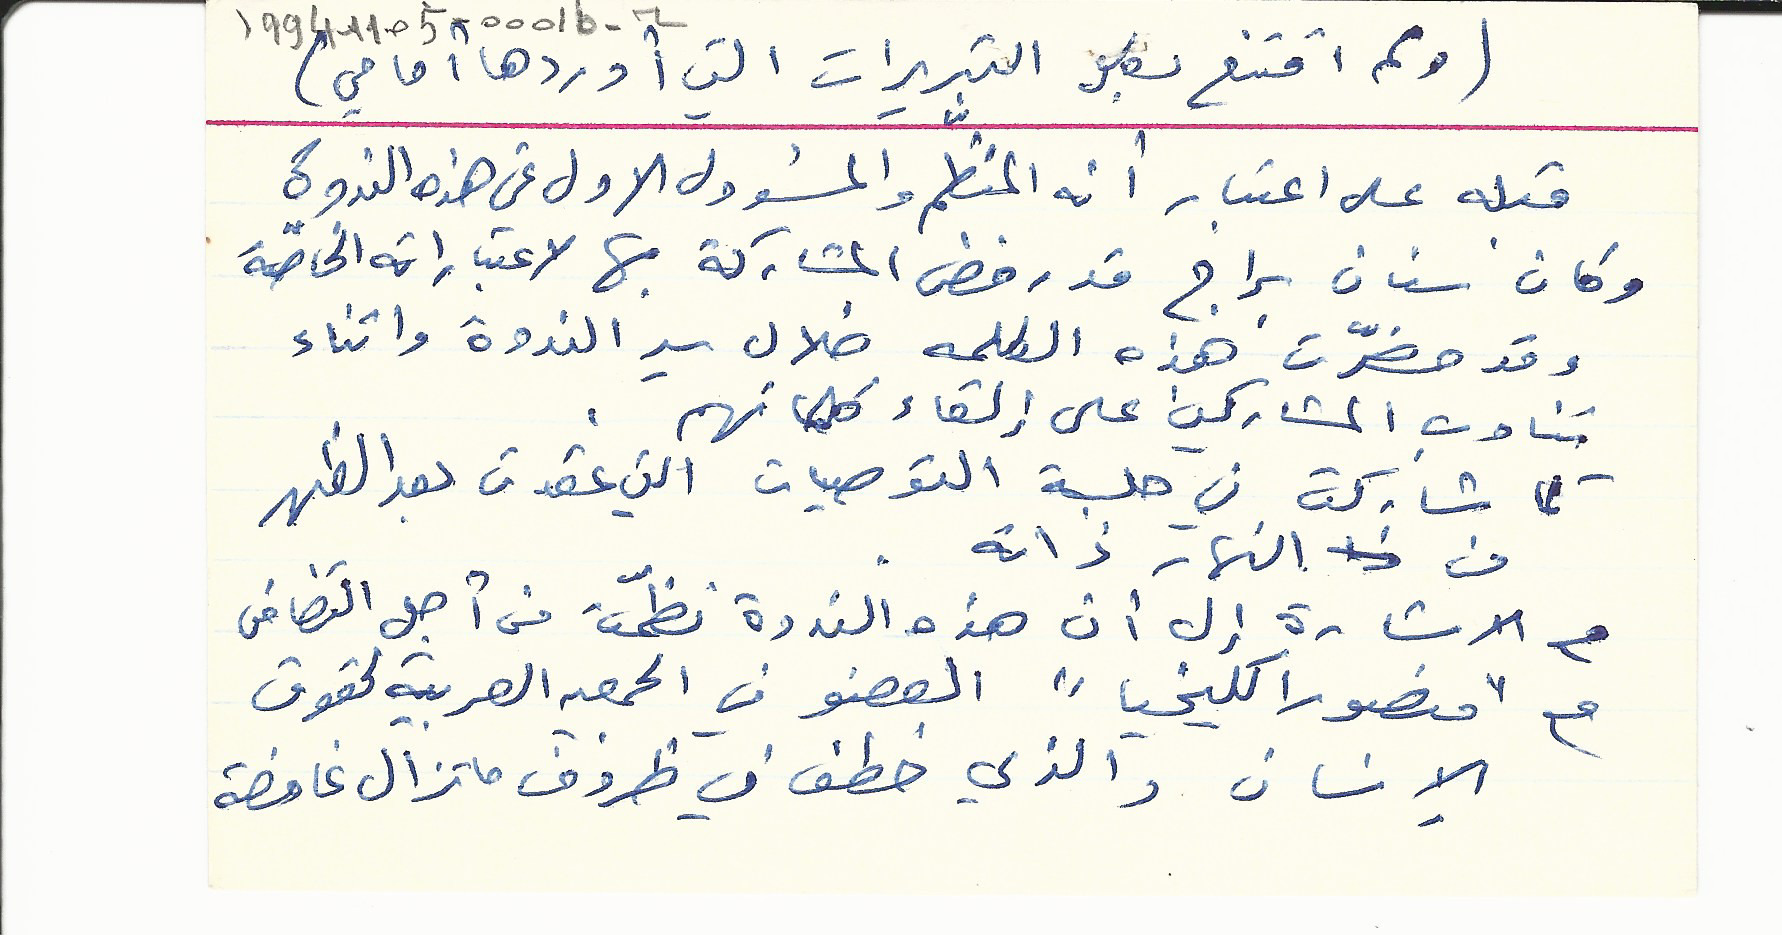 1994-11-05-0001b-2
(ولم اقتنع بكل التبريرات التي أوردها أمامي)
قبله على اعتبار أنه المنظّم والمسؤول الاول عن هذه الندوة
وكان سنان براج قد رفض المشاركة بها لاعتباراته الخاصّة
وقد حضّرت هذه الكلمه خلال سير الندوة واثناء
تناوب المشاركين على إلقاء كلماتهم .
كما شاركت في جلسة التوصيات التي عقدت بعد الظهر
من النهار ذاته .
مع الاشارة إلى أن هذه الندوة نظّمت من أجل التضامن
مع "منصور الكيخيا" العضو في الجمعيه العربية لحقوق
الإنسان والذي خطف في ظروف ماتزال غامضة